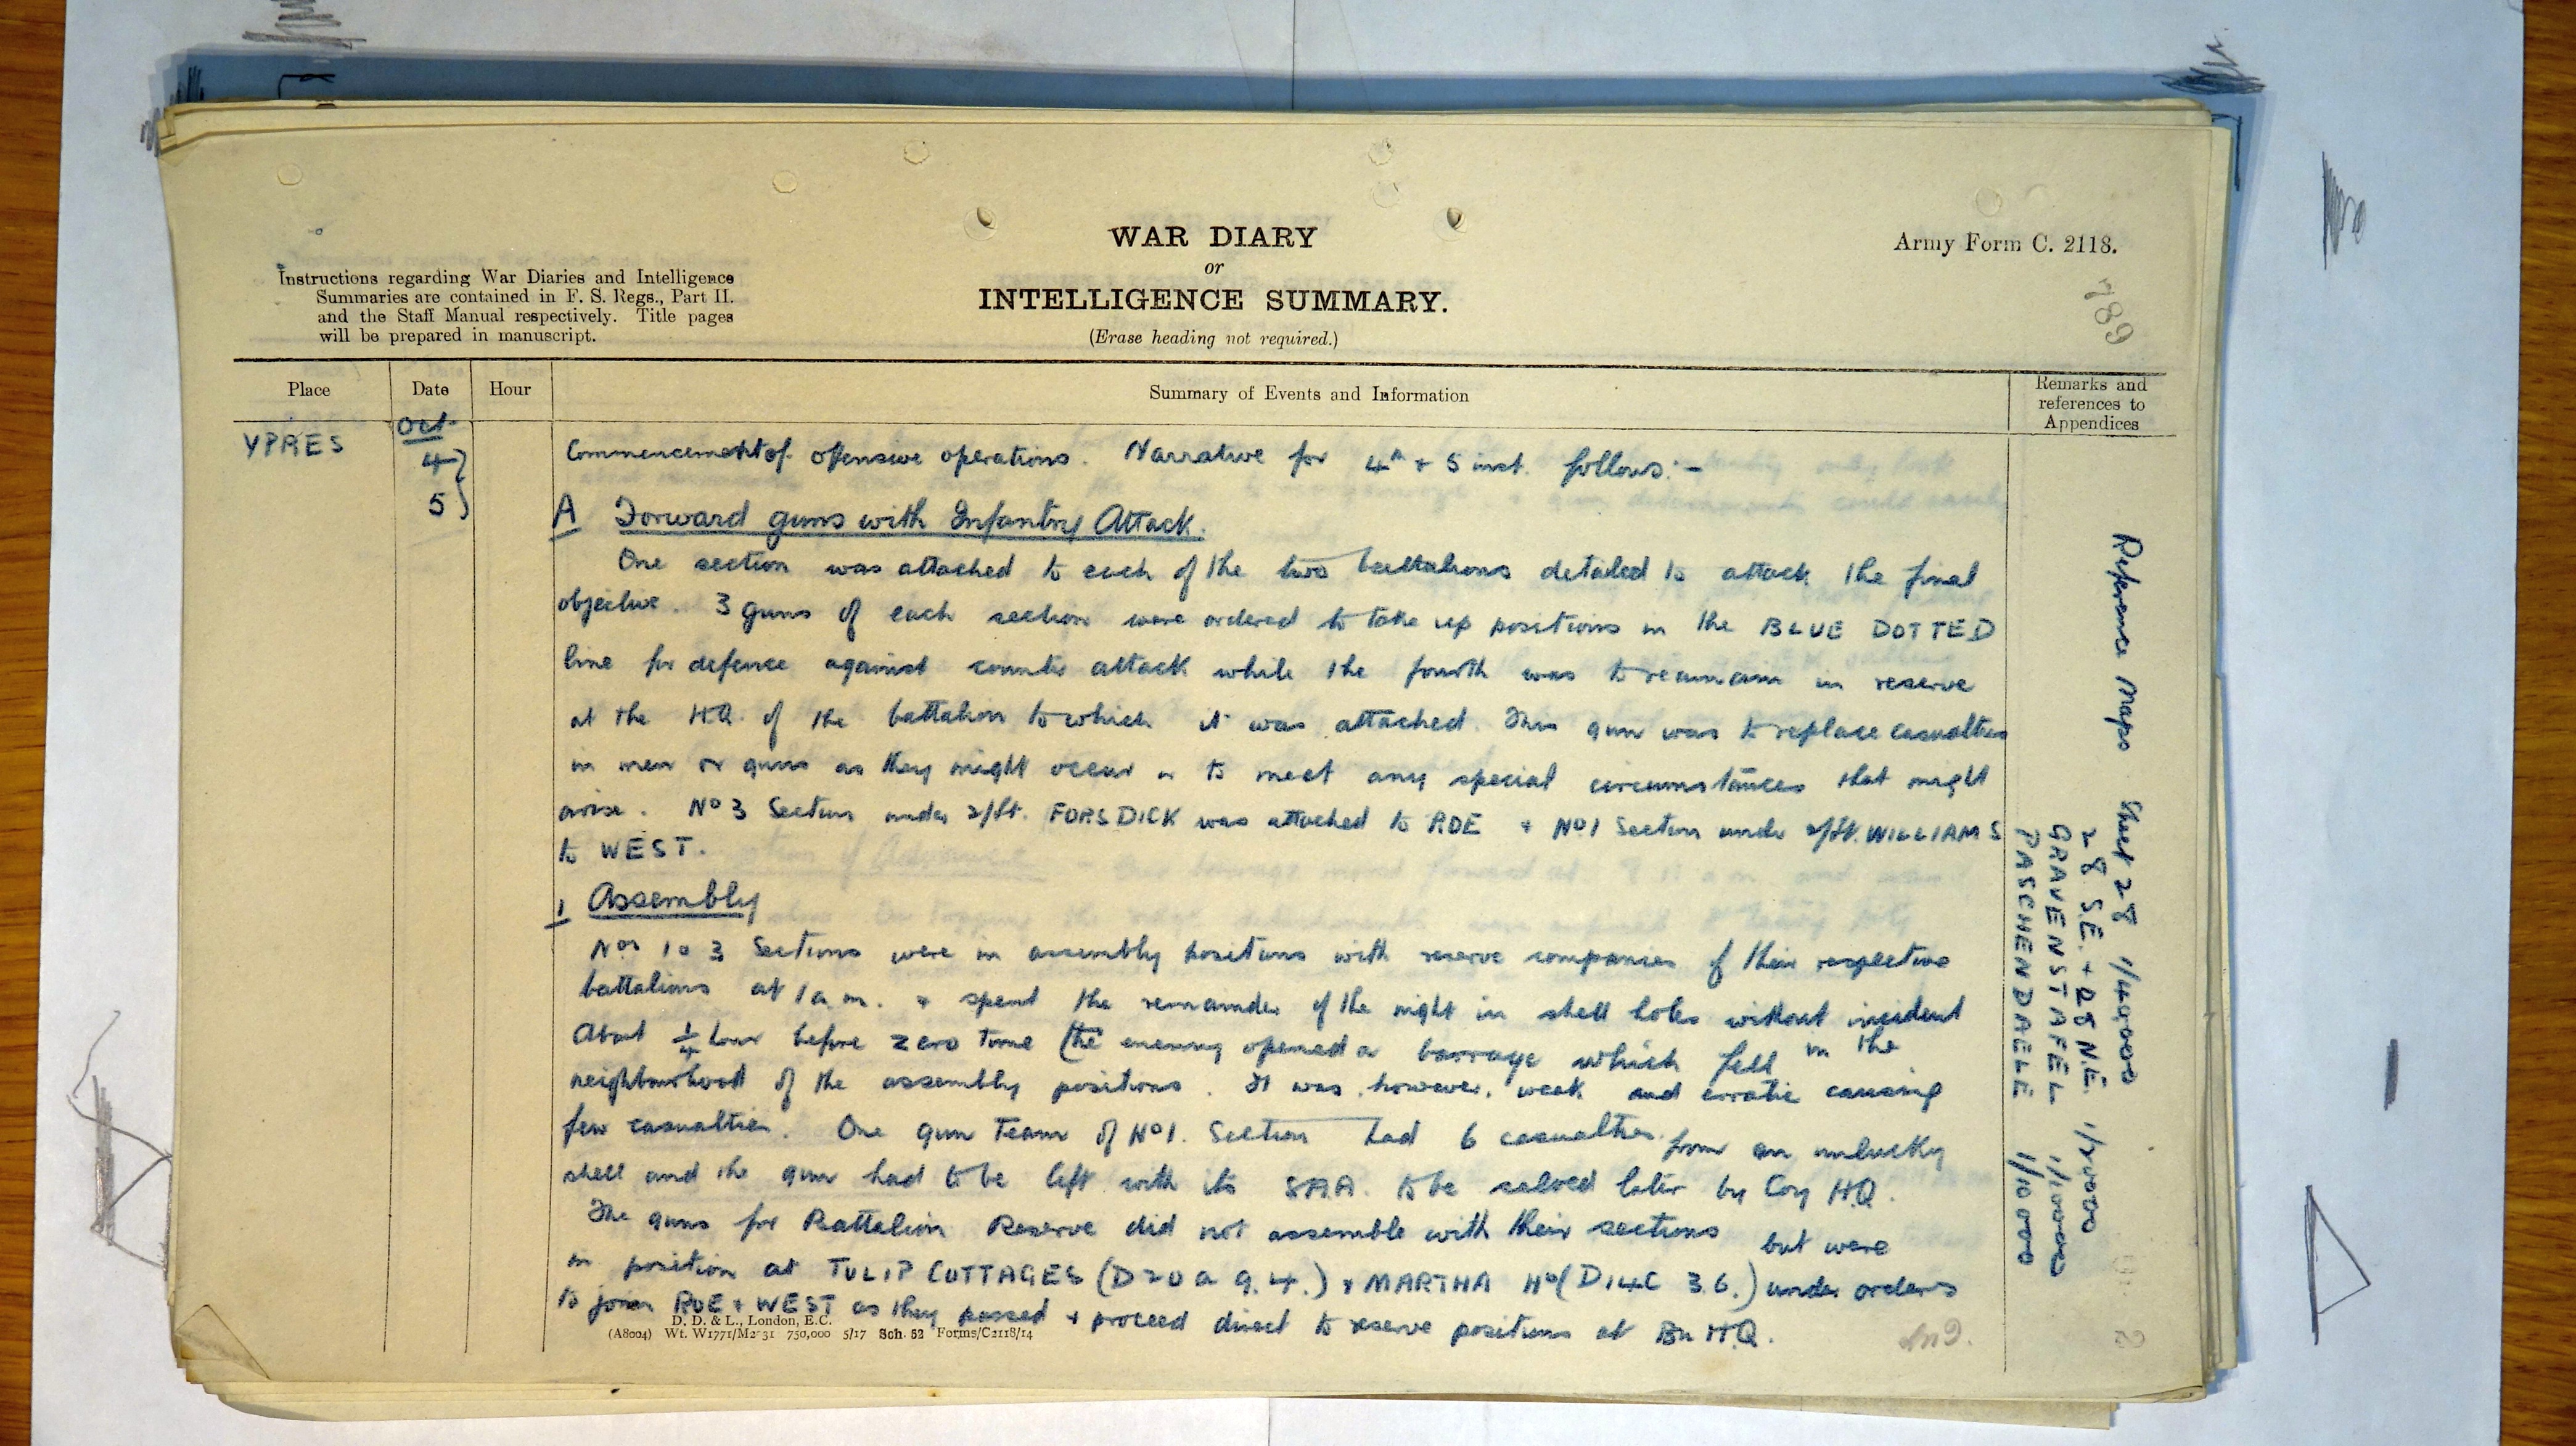 WAR DIARY
or
INTELLIGENCE SUMMARY.
(Erase heading not required.)
Army Form C. 2118.
789
Instructions regarding War Diaries and Intelligence
Summaries are contained in F. S. Regs., Part II.
and the Staff Manual respectively. Title pages
will be prepared in manuscript.
Place Date Hour Summary of Events and Information Remarks and
references to
Appendices
YPRES Oct.
4
5
Commencement of offensive operations. Narrative for 4th + 5 inst. follows:-
A Forward guns with Infantry Attack.
One section was attached to each of the two battalions detailed to attack the final
objective. 3 guns of each section were ordered to take up positions in the BLUE DOTTED
line for defence against counter attack while the fourth was to remain in reserve
at the H.Q. of the battalion to which it was attached. This gun was to replace casualties
in men or guns as they might occur or to meet any special circumstances that might
arise. No 3 Section under 2/Lt. FORSDICK was attached to ROE + No 1 Section under 2/Lt. WILLIAMS
to WEST.
1 Assembly
Nos 1 & 3 Sections were in assembly positions with reserve companies of their respective
battalions at 1 a.m. + spent the remainder of the night in shell holes without incident
About 1/4 hour before zero time the enemy opened a barrage which fell in the
neighbourhood of the assembly positions. It was, however, weak and erratic causing
few casualties. One gun team of No 1. Section had 6 casualties from an unlucky
shell and the gun had to be left with its SAA. to be salved later by Coy H.Q.
The guns for Battalion Reserve did not assemble with their sections but were
in position at TULIP COTTAGES (D20 a 9.4.) + MARTHA Ho (D14C 3.6.) under orders
to join ROE + WEST as they passed + proceed direct to reserve positions at Bn H.Q.
D. D. & L., London, E.C.
(A8004) Wt. W1771/M2031 750,000 5/17 Sch. 52 Forms/C2118/14
Reference Maps Sheet 28 1/40000
28 S.E. + 28 N.E. 1/20000
GRAVENSTAFEL 1/10000
PASCHENDAELE 1/10000